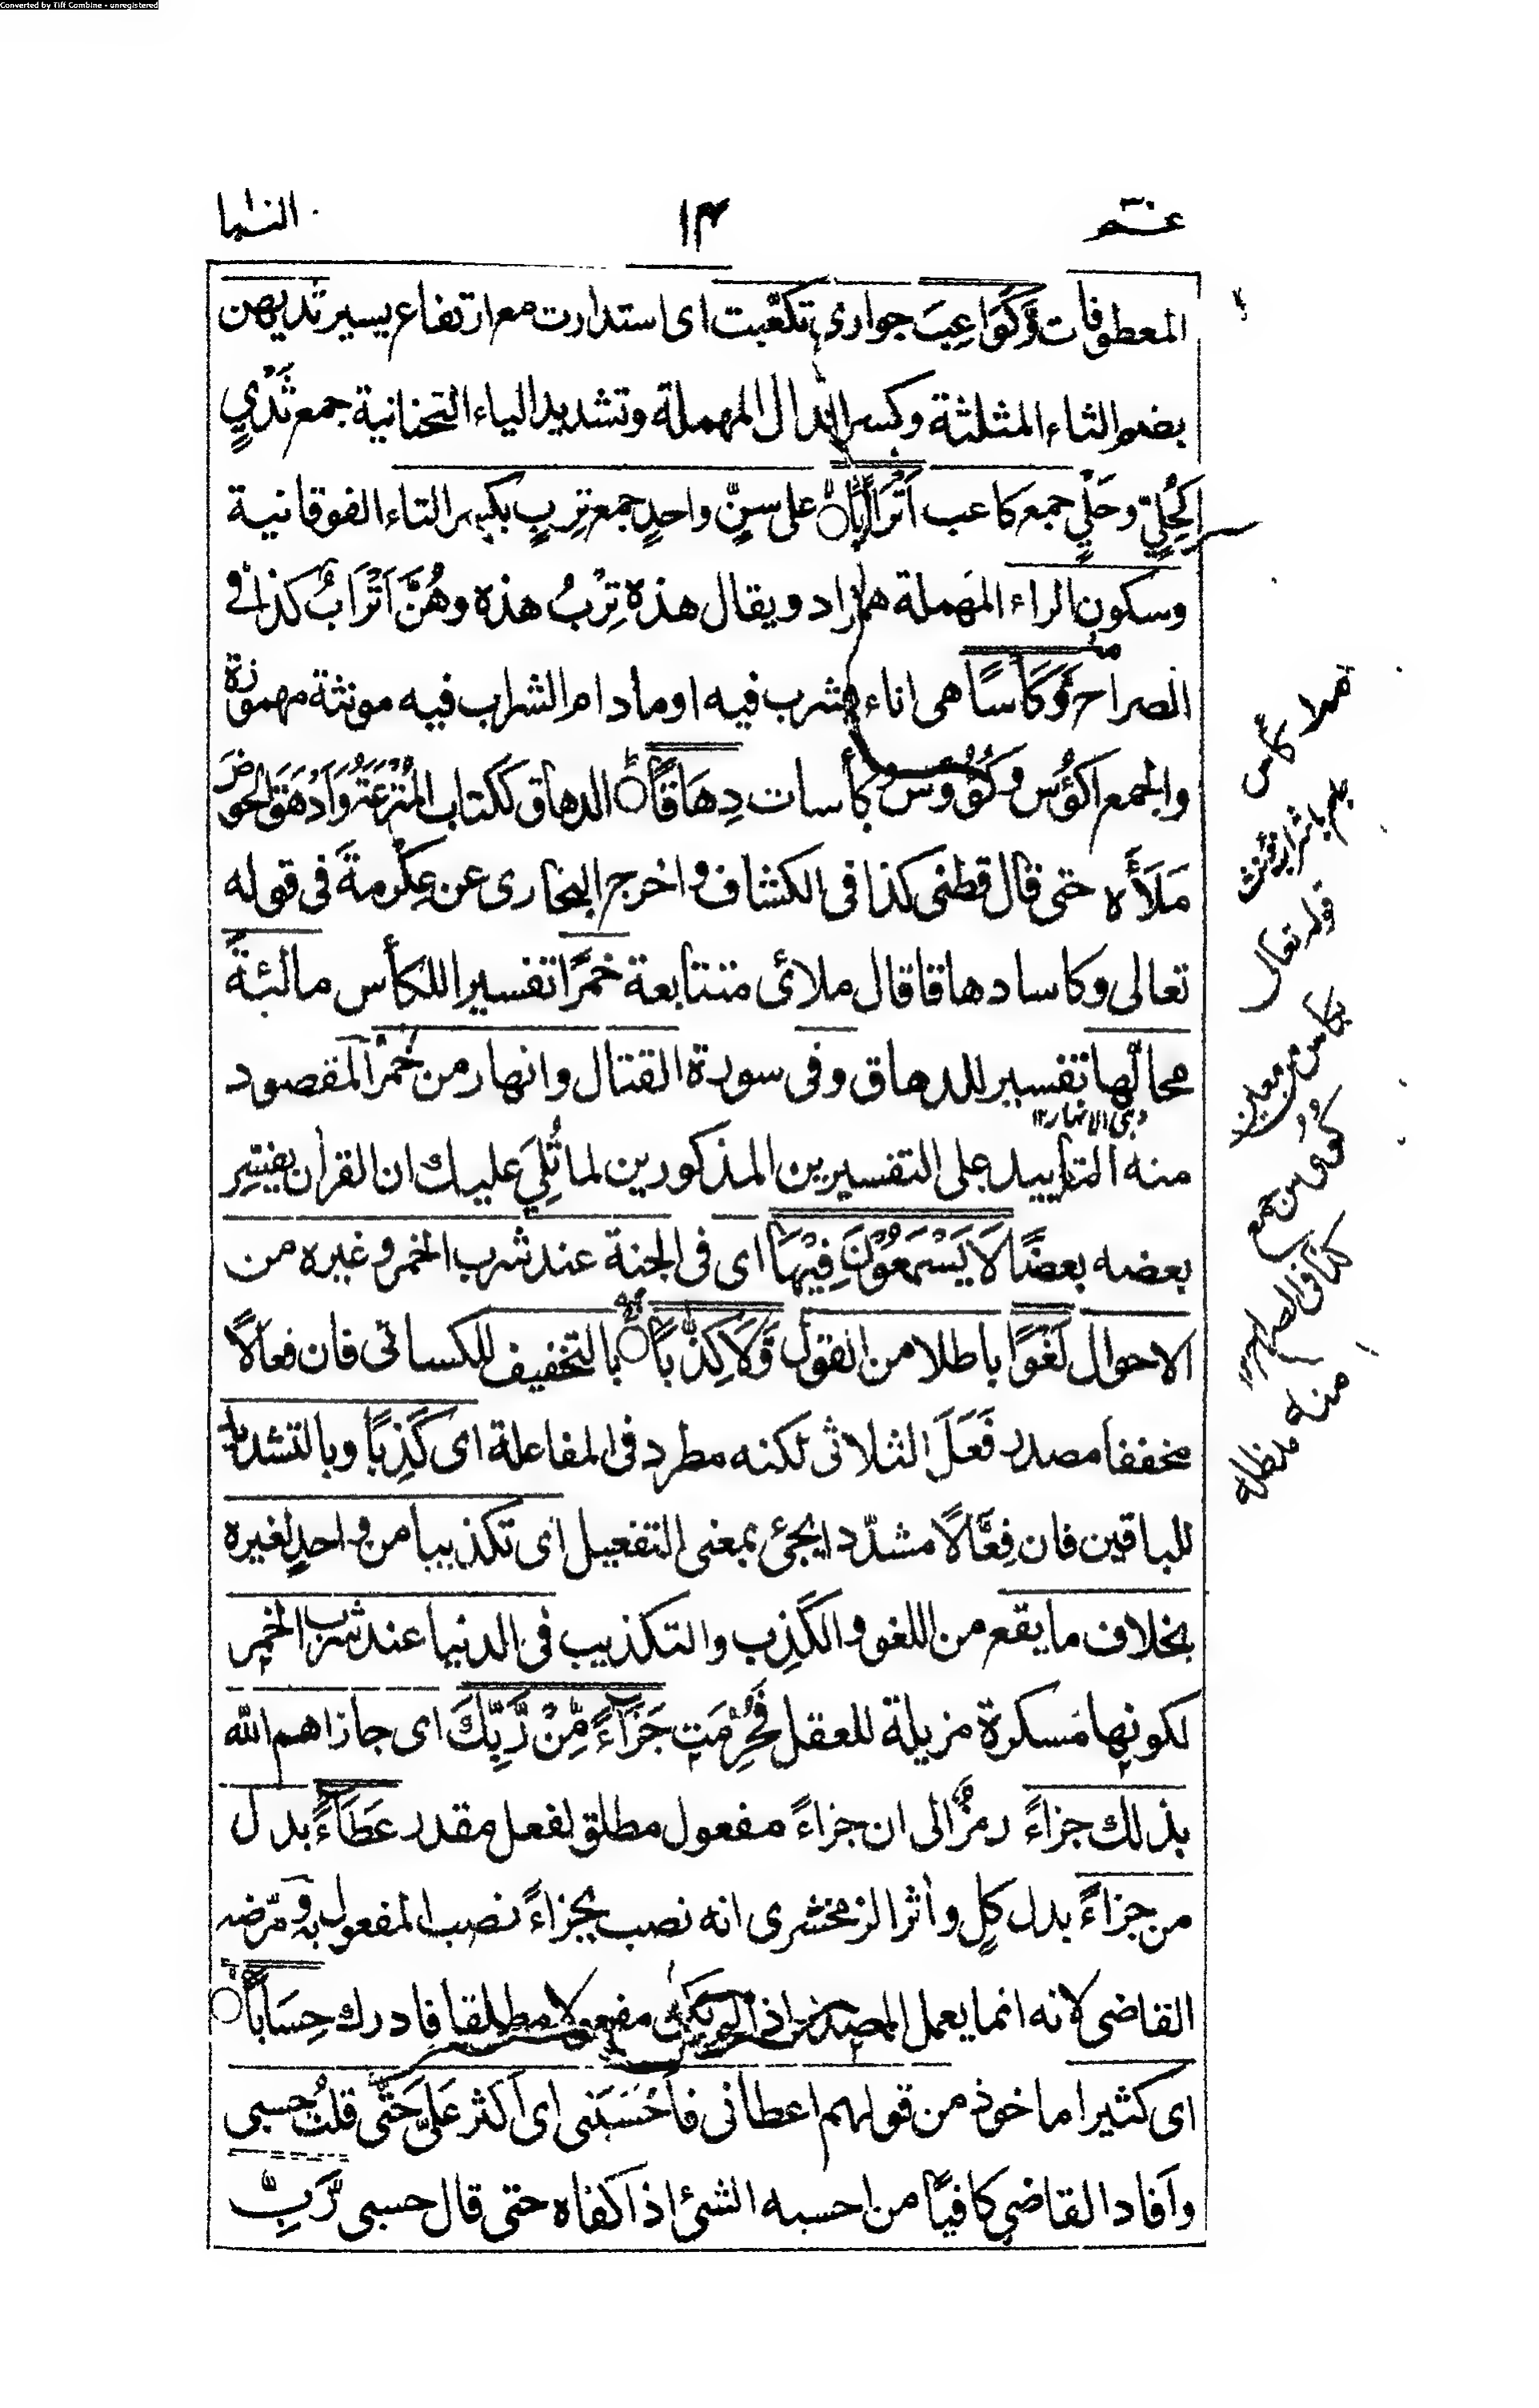 Converted by Tiff Combine - unregistered
عمّ ١٤ النبا
المعطوفات وَّكَوَاعِبَ جواری تكعّبت ای استدارت مع ارتفاع یسیر ثدیهن
بضم الثاء المثلثة وكسر الدال المهملة وتشدید الیاء التحتانیة جمع ثَدْیٍ
كَحُلِیٍّ وحَلْیٍ جمع كاعب اَتْرَابًا علی سنٍّ واحدٍ جمع تِربٍ بكسر التاء الفوقانیة
وسكون الراء المهملة همزاد ویقال هذه تِرْبُ هذه وهُنَّ اَتْرَابٌ كذا فی
الصراح وَّكَأْسًا هی اناء یشرب فیه او مادام الشراب فیه مونثة مهموزة
والجمع اكؤُس وكُؤُوس وكأسات دِهَاقًا الدهاق ككتاب المُتْرَعَةُ وَاَدْهَقَ الحوضَ
مَلَأَه حتی قال قطنی كذا فی الكشاف واخرج البخاری عن عِكْرمةَ فی قوله
تعالی وكاسا دهاقا قال ملائ متتابعة خمرًا تفسیر للكأس مالئةً
محالّها تفسیر للدهاق وفی سورة القتال وانهار من خمر المقصود
وهی الانهار ١٢
منه التأیید علی التفسیرین المذكورین لما تُلِیَ علیك ان القران یفسّر
بعضه بعضًا لَا یَسْمَعُوْنَ فِیْهَا ای فی الجنة عند شرب الخمر وغیره من
الاحوال لَغْوًا باطلا من القول وَّلَا كِذّٰبًا بالتخفیف للكسائی فان فعالًا
مخففا مصدر فَعَلَ الثلاثی لكنه مطرد فی المفاعلة ای كَذِبًا وبالتشدید
للباقین فان فِعَّالًا مشدّدا یجئ بمعنی التفعیل ای تكذیبا من واحدٍ لغیره
بخلاف ما یقع من اللغو والكَذِب والتكذیب فی الدنیا عند شرب الخمر
لكونها مسكرة مزیلة للعقل فَحُرِّمَت جَزَآءً مِّنْ رَّبِّكَ ای جازاهم الله
بذلك جزاءً رمزٌ الی ان جزاءً مفعول مطلق لفعل مقدر عَطَآءً بدل
من جزاءً بدل كلٍ وأثر الزمخشری انه نصب بجزاءً نصب المفعول به ومرّضه
القاضی لانه انما یعمل المصدر اذا لم یكن مفعولا مطلقا فادرك حِسَابًا
ای كثیرا ماخوذ من قولهم اعطانی فاَحْسَبَنی ای اكثر عَلَیَّ حَتّٰی قلتُ حسبی
وأفاد القاضی كافیًا من احسبه الشئ اذا كفاه حتی قال حسبی رَّبِّ
كأس
قوله تعالی
بكأس من معین
كذا فی الصراح
منه مدظله